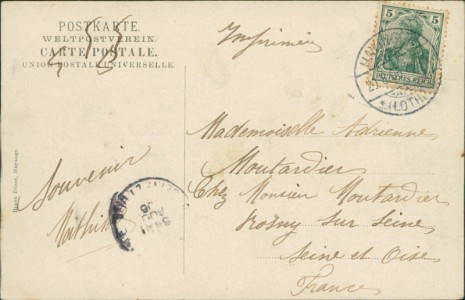 POSTKARTE.
WELTPOSTVEREIN.
CARTE POSTALE.
UNION POSTALE UNIVERSELLE.
Imprimés
5 5
DEUTSCHES REICH
(LOTH
Mademoiselle Adrienne
Moutardier
Chez Monsieur Moutardier
Rosny sur Seine
Seine et Oise
France
Souvenir
Mathilde